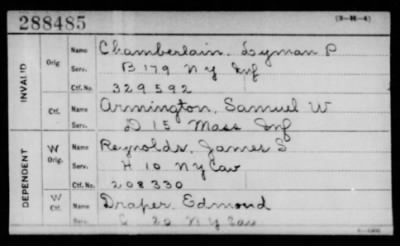 288485
(3-H-4)
INVALID
Orig.
Name Chamberlain, Lyman P
Serv. B 179 N Y Inf
Ctf. No. 329592
Ctf.
Name Armington, Samuel W
Serv. D 15 Mass Inf
DEPENDENT
W
Orig.
Name Reynolds, James S
Serv. H 10 N Y Cav
Ctf. No. 208330
W
Ctf.
Name Draper, Edmond
Serv. C 20 N Y Cav